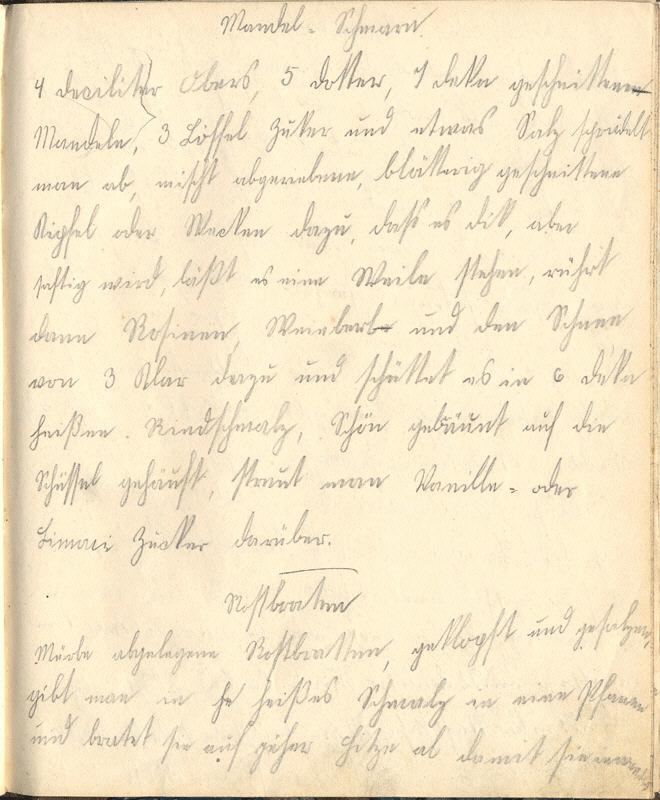 Mandel-Schmarn.
4 deciliter Obers, 5 Dotter, 7 deka geschnittene
Mandeln, 3 Löffel Zuker und etwas Salz sprudelt
man ab, mischt abgeriebene, blätterig geschnittene
Kipfel oder Wecken dazu, dass es dik, aber
saftig wird, läßt es eine Weile stehen, rührt
dann Rosinen, Weinberl und den Schnee
von 3 Klar dazu und schüttet es in 6 deka
heißen Rindschmalz, Schön gebäunt auf die
Schüssel gehäuft, streut man Vanille- oder
Limoni Zucker darüber.
Rostbraten
Mürbe abgelegene Rostbratten, geklopft und gesalzen,
gibt man in heißes Schmalz in eine Pfanne
und bratet sie auf gäher Hitze ab damit sie inwendig